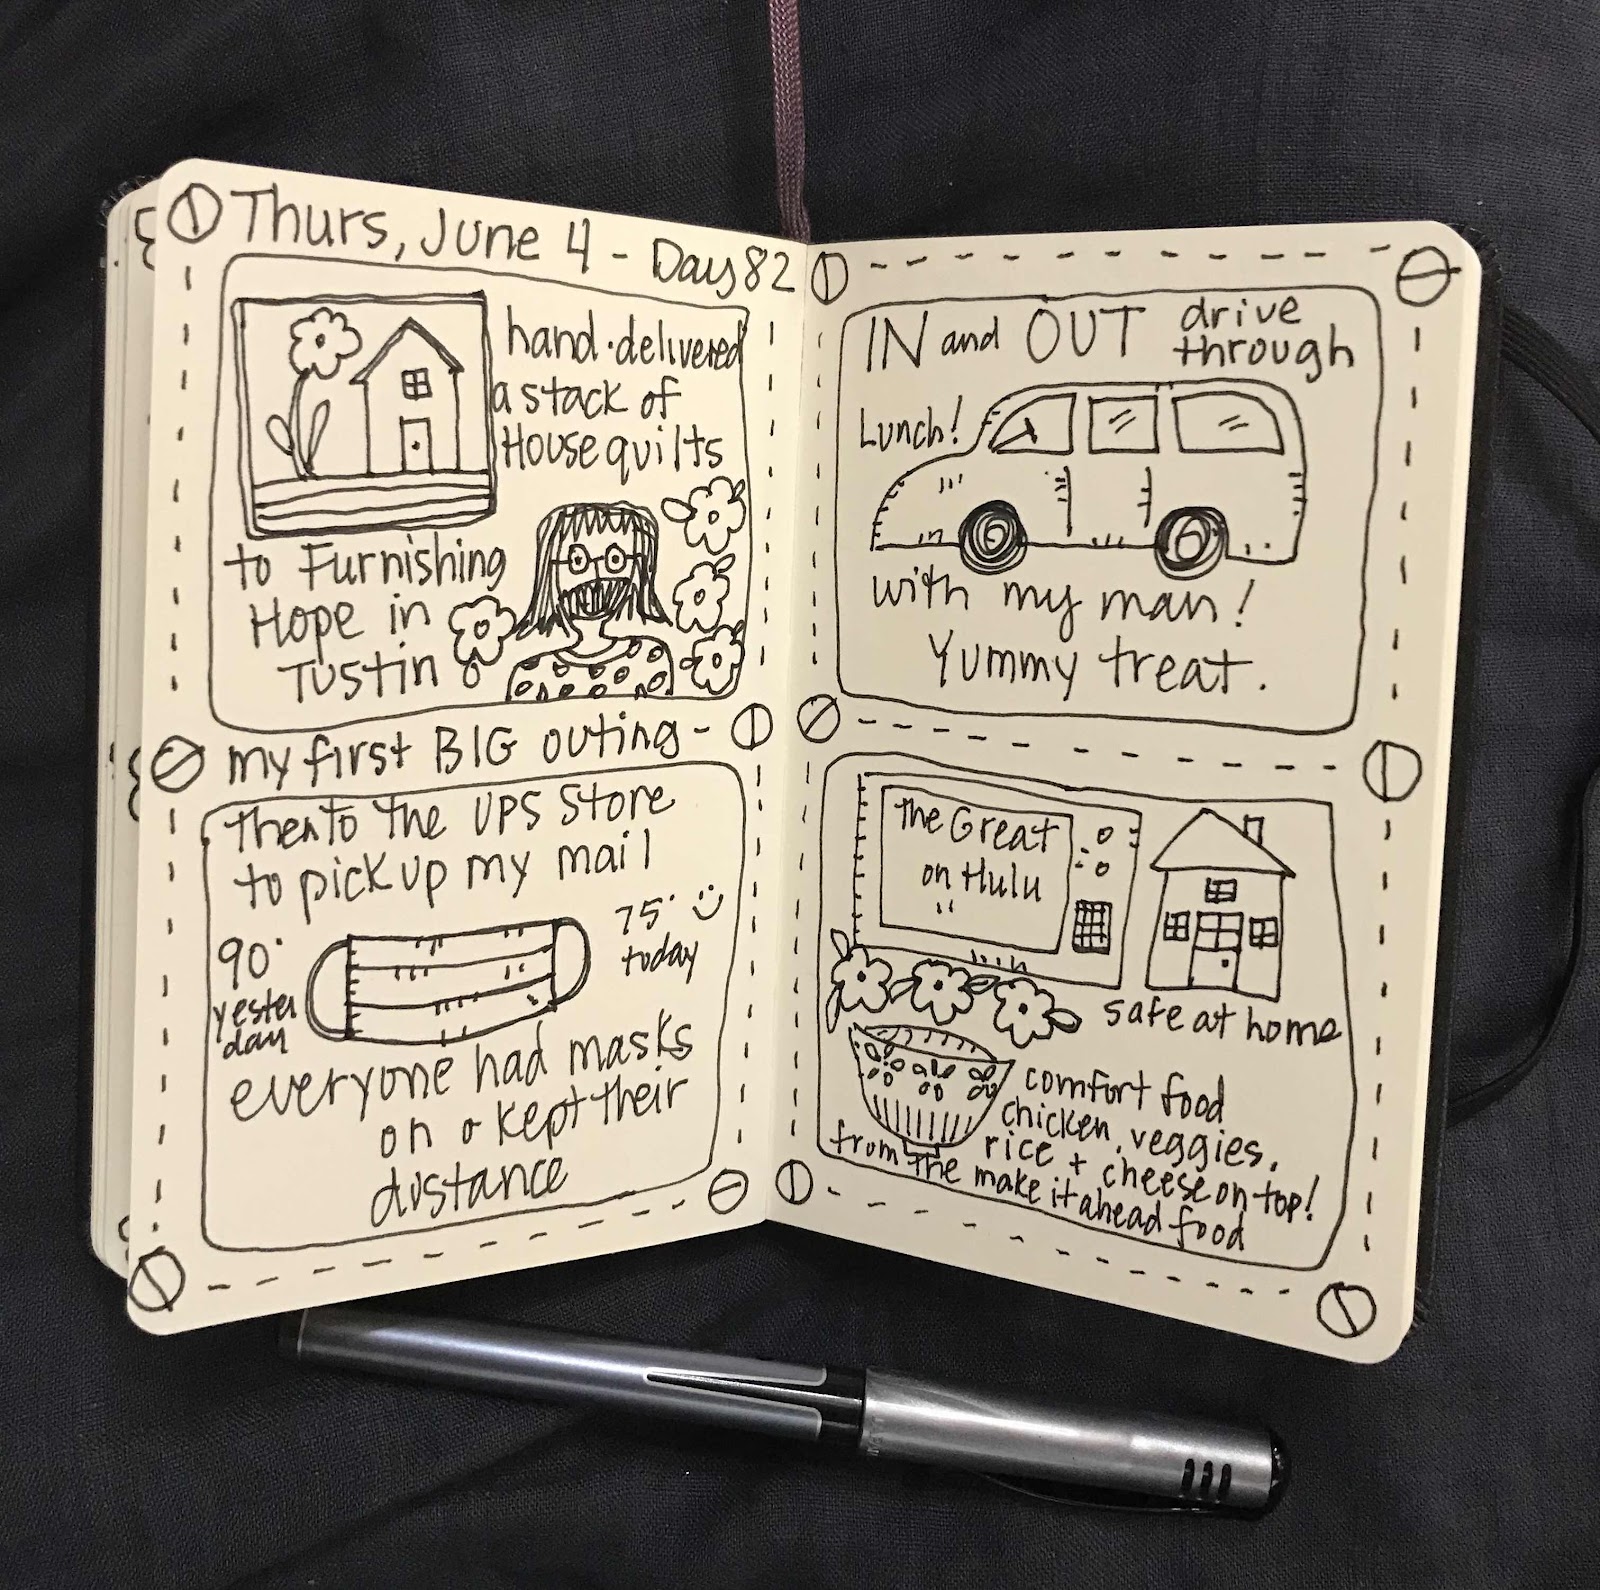 Thurs, June 4 - Day 82
hand-delivered
a stack of
House quilts
to Furnishing
Hope in
Tustin
my first BIG outing-
then to the UPS Store
to pick up my mail
90°
yester
day
75° :)
today
everyone had masks
on + kept their
distance
IN and OUT drive
through
Lunch!
with my man!
Yummy treat.
the Great
on Hulu
safe at home
comfort food
chicken, veggies,
rice + cheese on top!
from the make it ahead food